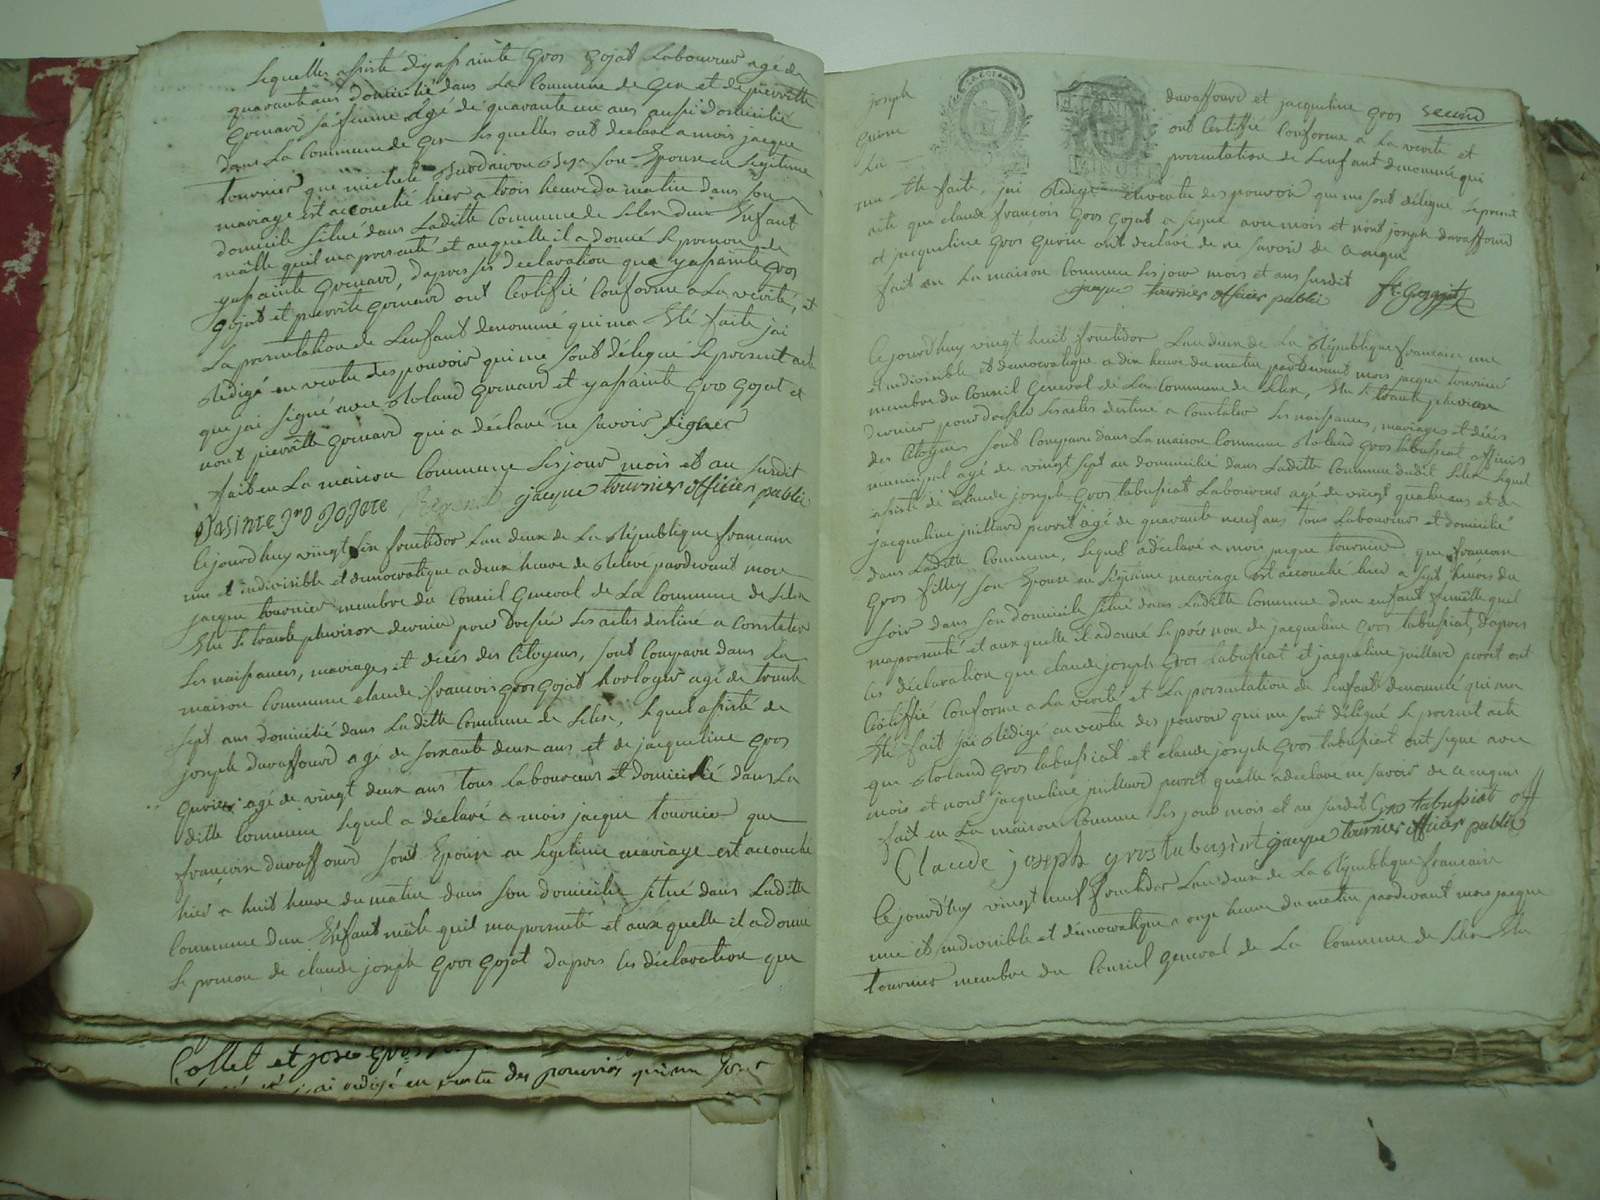 Lequelle assisté d'yassainte Gros Gojat Laboureur agé de
quarante ans domicilié dans La Commune de Gex et de pierrette
Grenard sa femme agé de quarante un ans aussi domicilié
dans La Commune de Gex Lesquelles ont déclaré a mois jacque
tournier que michele son Epouse en Legitime
mariage est accouché hier a trois heure du matin dans son
domicile situé dans Laditte Commune de Lelex dun Enfant
mâlle quil ma presenté et auquelle il a donné Le prenom de
yassainte Grenard, dapres les declaration que yassainte Gros
Gojat et pierrette Grenard ont Certifié Conforme a La verité, et
La presentation de Lenfant denommé qui ma Eté faite jai
Rédigé en vertu des pouvoir qui me sont délégué Le present acte
que jai signé avec Roland Grenard et yassainte Gros Gojat et
nont pierrette Grenard qui a déclaré ne savoir signer
fait en La maison Commune Les jour mois et an susdit
yasinte gro gojate jacque tournier officier public
Cejourd'huy vingt six fructidor Lan deux de La République francaise
une et indivisible et democratique a deux heure de Relevé pardevant mois
jacque tournier membre du Conseil General de La Commune de Lelex
Elu Le trante pluviose dernier pour dresser Les actes destine a Constater
Les naissances, mariages et décés des Citoyens, sont Comparu dans La
maison Commune claude françois gros gojat horloger agé de trante
sept ans domicilié dans Laditte Commune de Lelex, Lequel assisté de
joseph duraffourd agé de soixante deux ans et de jacqueline Gros
Gurier agé de vingt deux ans tous Laboureurs et domicilié dans La
ditte Commune Lequel a déclaré a mois jacque tournier que
françoise duraffourd sont Epouse en Legitime mariage est accouché
hier a huit heure du matin dans son domicile situé dans Laditte
Commune dun Enfant mâle quil ma presenté et aux quelle il a donné
Le prenom de claude joseph Gros Gojat dapres les déclaration que
Collet et jose gros
jai redigé en vertu des pouvoirs qui me sont
joseph
La
duraffourd et jacqueline Gros second
ont Certifié Conforme a La verité et
presentation de Lenfant denommé qui
ma Eté faite, jai Rédigé en vertu des pouvoir qui me sont délégué Le present
acte que claude françois Gros Gojat a signé avec mois et nont joseph duraffourd
et jacqueline Gros Gurier ont déclaré de ne savoir de ce enquis
fait en La maison Commune Les jour mois et ans susdit
jacque tournier officier public
Cejourd'huy vingt huit fructidor Lan deux de La République francaise une
et indivisible et democratique a dix heure du matin pardevant mois jacque tournier
membre du Conseil General de La Commune de Lelex, Elu Le trante pluviose
dernier pour dresser Les actes destiné a Constater Les naissances, mariages et décés
des Citoyens sont Comparu dans La maison Commune Roland gros tabussiat officier
municipal agé de vingt sept an domicilié dans Laditte Commune dudit Lelex Lequel
assisté de claude joseph Gros tabussiat Laboureur agé de vingt quatre ans et de
jacqueline juillard perrit agé de quarante neuf ans tous Laboureur et domicilié
dans Laditte Commune, Lequel a déclaré a mois jacque tournier que francoise
Gros fillez son Epouse en Légitime mariage est accouché hier a sept heures du
soir dans son domicile situé dans Laditte Commune dun enfant femelle quil
ma presenté et aux quelle il a donné Le pré nom de jacqueline Gros tabussiat, dapres
les déclaration que claude joseph Gros tabussiat et jacqueline juillard perrit ont
Certiffié Conforme a La verité et La presentation de Lenfant denommé qui ma
Eté fait jai Rédigé en vertu des pouvoir qui me sont délégué Le present acte
que Roland Gros tabussiat et claude joseph Gros tabussiat ont signé avec
mois et nont jacqueline juillard perrit quelle a déclare ne savoir de ce enquis
fait en La maison Commune Les jour mois et an susdit Gros tabussiat off
Claude joseph grostabusiat jacque tournier officier public
Cejourd'huy vingt neuf fructidor Lan deux de La République francaise
une et indivisible et démocratique a onze heure du matin pardevant mois jacque
tournier membre du Conseil General de La Commune de Lelex Elu